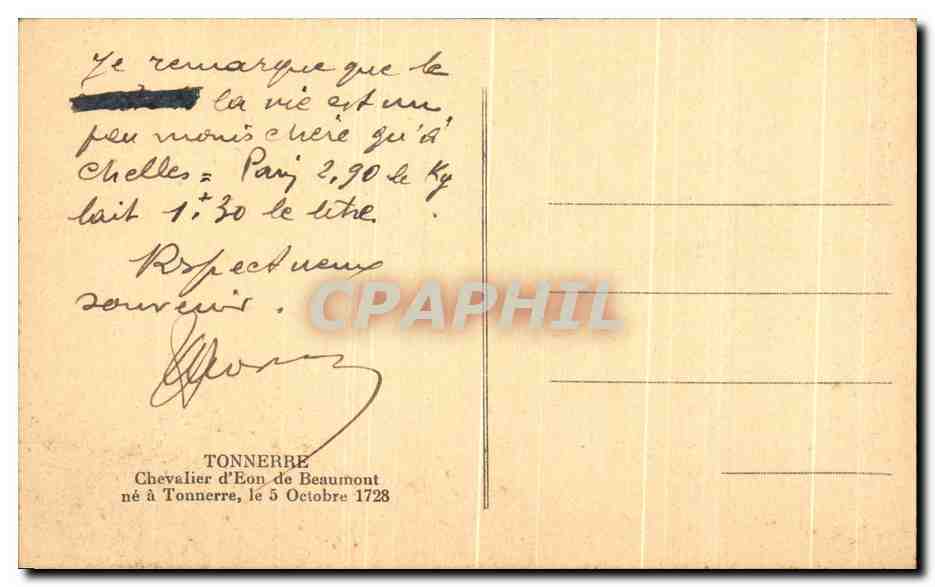 Je remarque que le
la vie est un
peu moins chère qu'à
Chelles = Pain 2,90 le Kg
lait 1f30 le litre.
Respectueux
souvenir.
TONNERRE
Chevalier d'Eon de Beaumont
né à Tonnerre, le 5 Octobre 1728
CPAPHIL